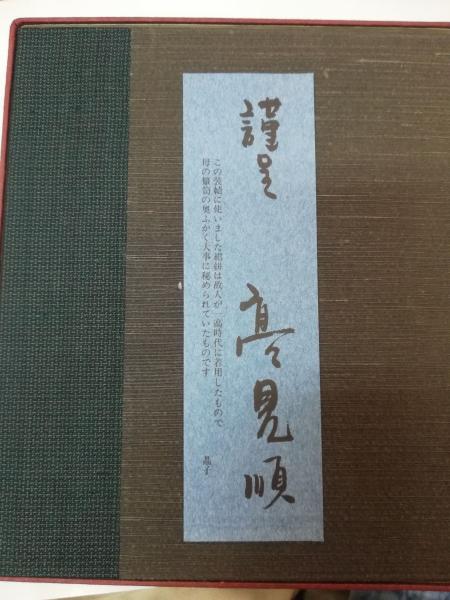 謹呈 高見順
この装幀に使いました紺絣は故人が一高時代に着用したもので
母の箪笥の奥ふかく大事に秘められていたものです
晶子